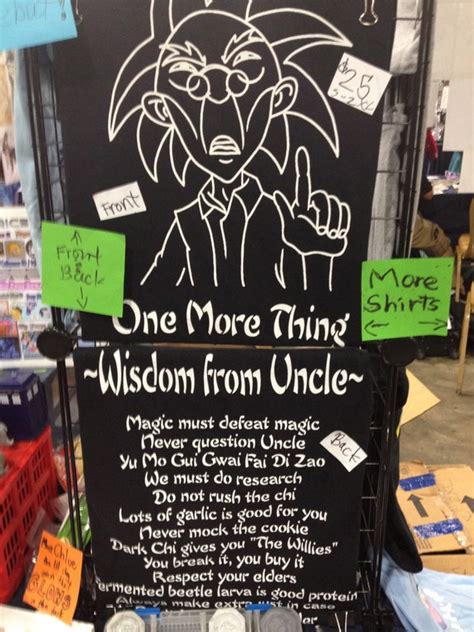 $25
S-2XL
Front
Front
&
Back
More
Shirts
One More Thing
~Wisdom from Uncle~
Magic must defeat magic
Never question Uncle
Yu Mo Gui Gwai Fai Di Zao
Back
We must do research
Do not rush the chi
Lots of garlic is good for you
Never mock the cookie
Dark Chi gives you "The Willies"
You break it, you buy it
Respect your elders
Fermented beetle larva is good protein
Always make extra just in case